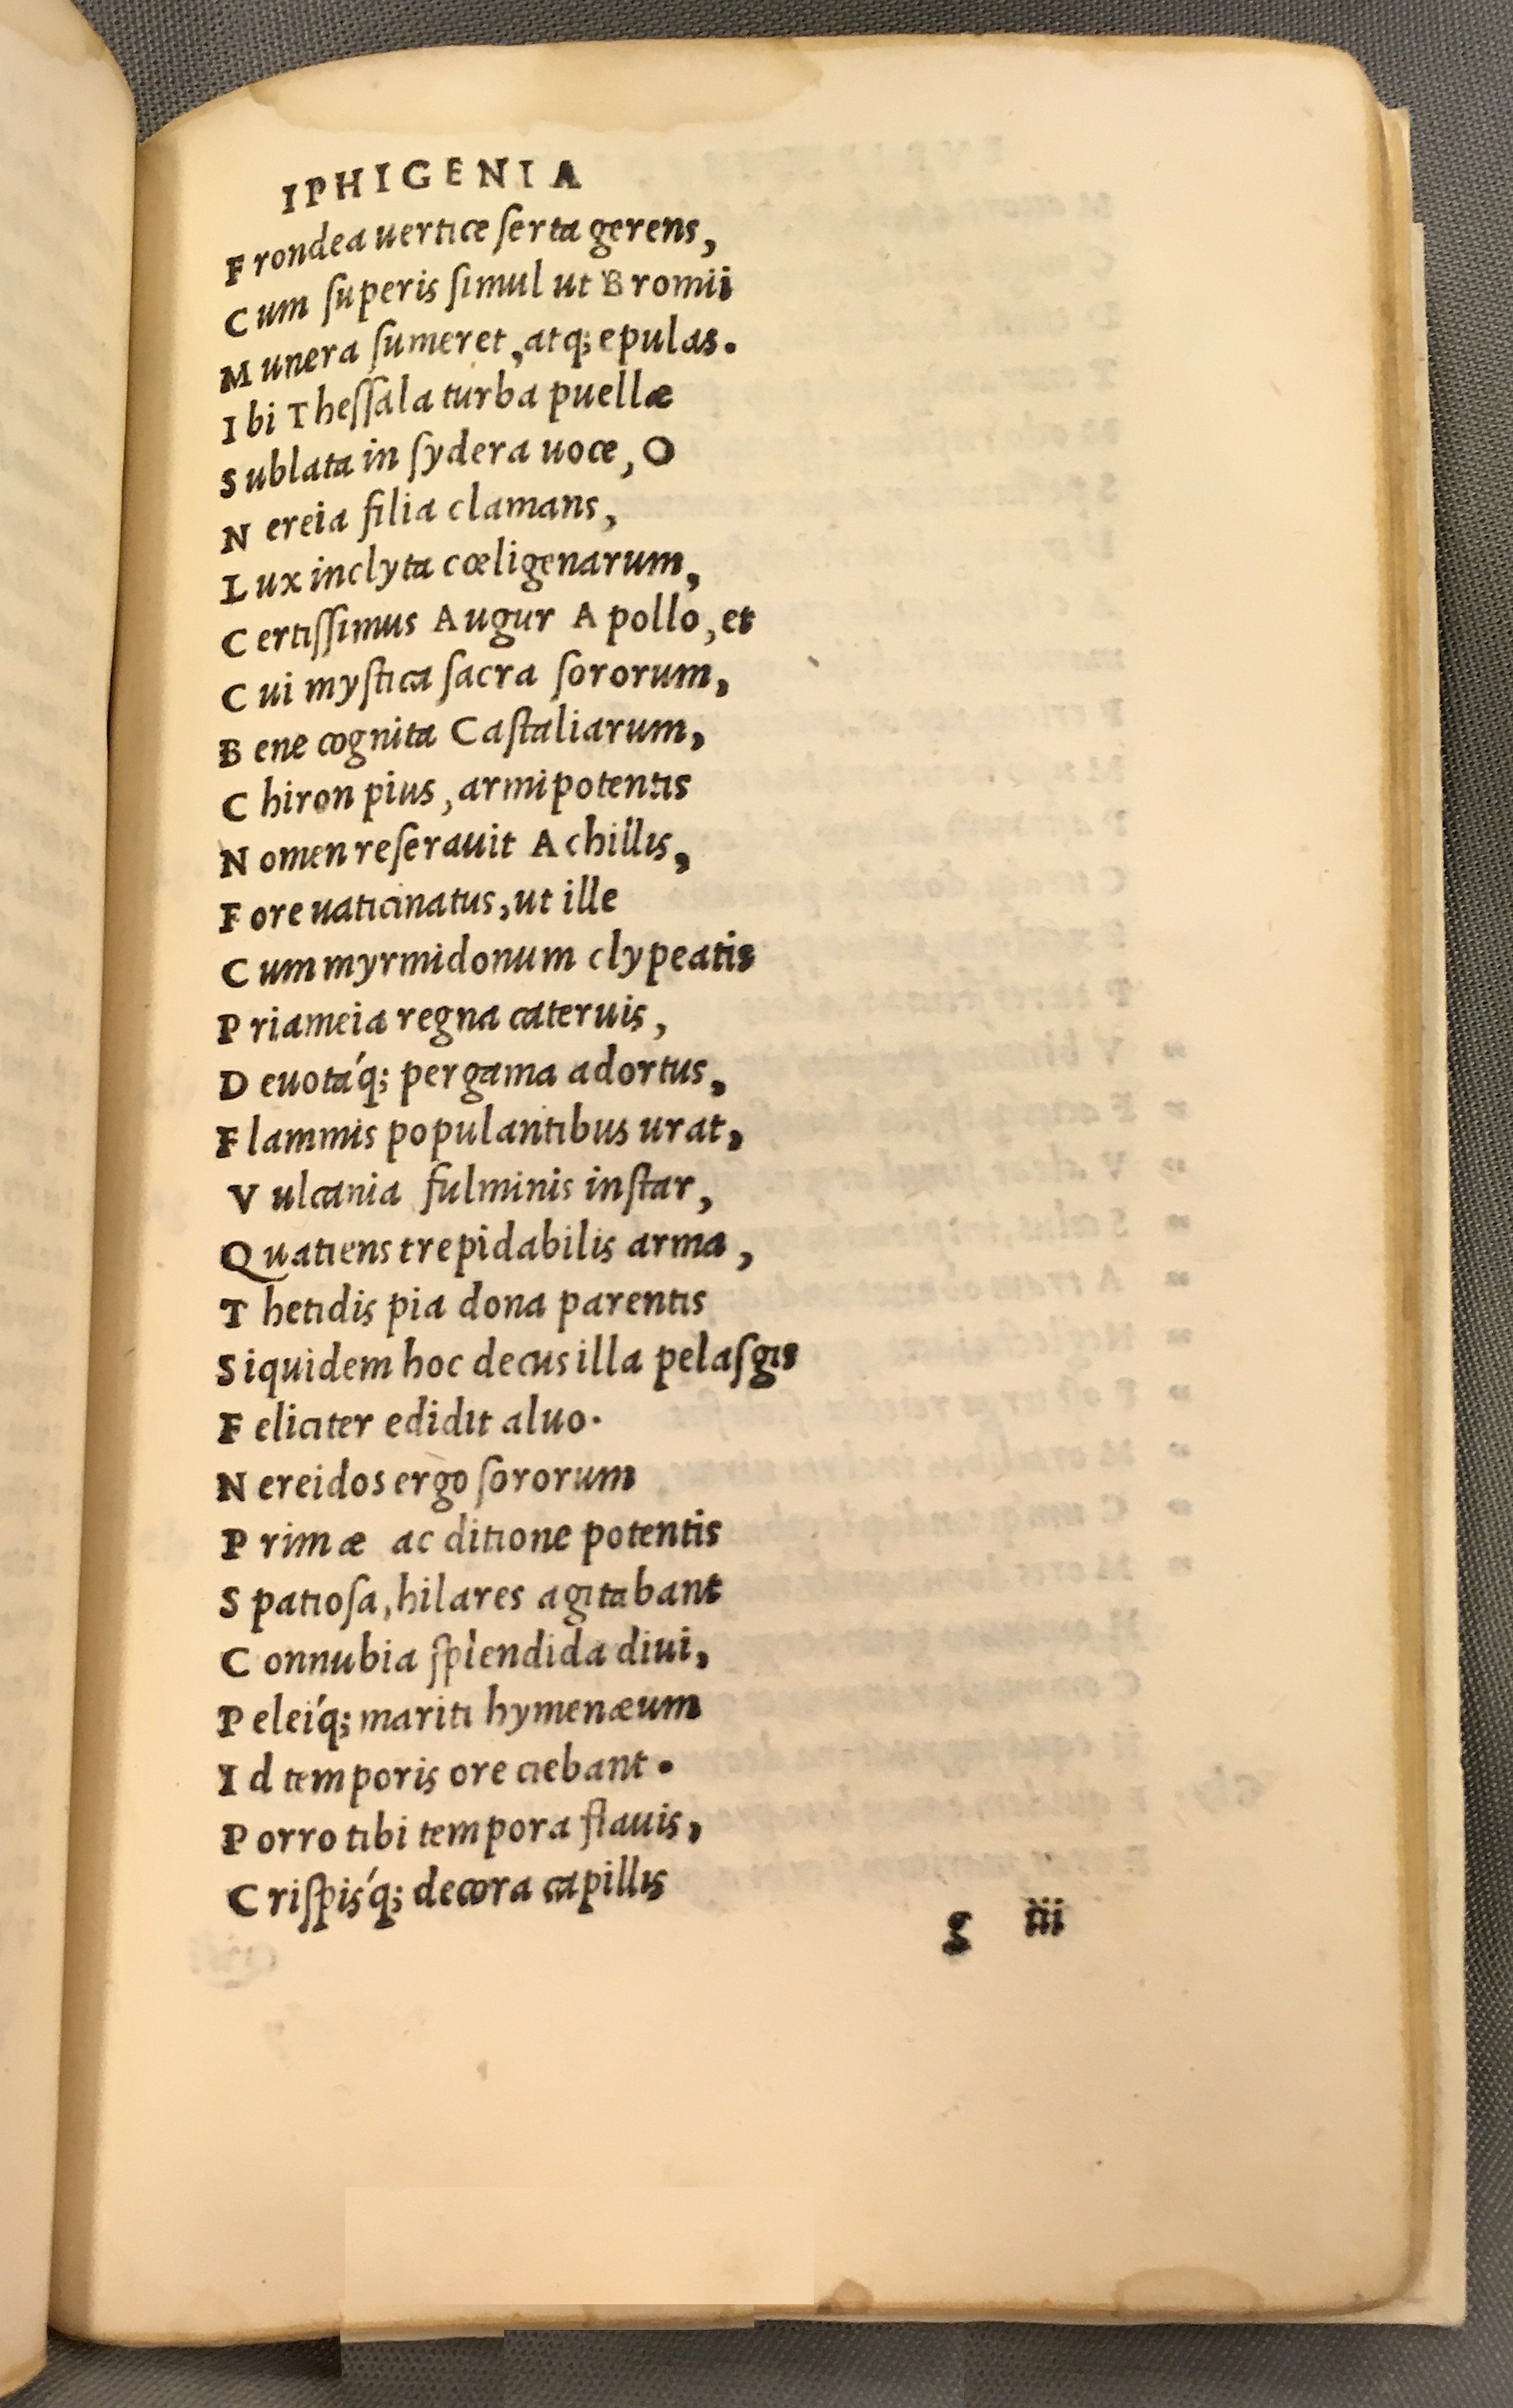 IPHIGENIA
Frondea uertice ſerta gerens,
Cum ſuperis ſimul ut Bromii
Munera ſumeret, atq; epulas.
Ibi Theſſala turba puellæ
Sublata in ſydera uoce, O
Nereia filia clamans,
Lux inclyta cœligenarum,
Certiſſimus Augur Apollo, et
Cui myſtica ſacra ſororum,
Bene cognita Caſtaliarum,
Chiron pius, armipotentis
Nomen reſerauit Achillis,
Fore uaticinatus, ut ille
Cum myrmidonum clypeatis
Priameia regna cateruis,
Deuotáq; pergama adortus,
Flammis populantibus urat,
Vulcania fulminis inſtar,
Quatiens trepidabilis arma,
Thetidis pia dona parentis
Siquidem hoc decus illa pelaſgis
Feliciter edidit aluo.
Nereidos ergo ſororum
Primæ ac ditione potentis
Spatioſa, hilares agitabant
Connubia ſplendida diui,
Peleíq; mariti hymenæum
Id temporis ore ciebant.
Porro tibi tempora flauis,
Criſpiśq; decora capillis
g iii